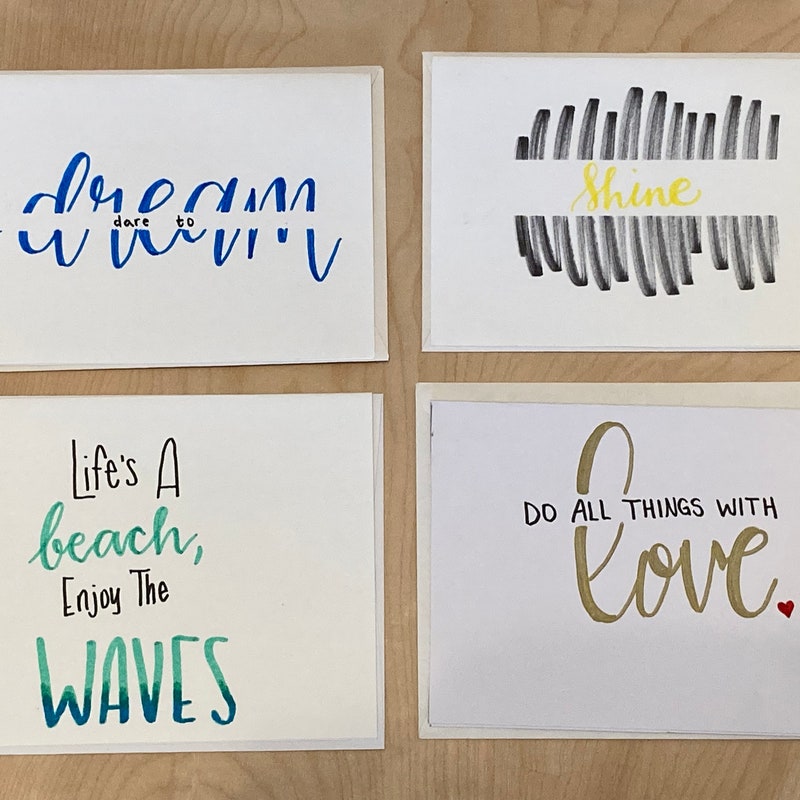 dream
dare to
Shine
Life's A
beach,
Enjoy The
WAVES
DO ALL THINGS WITH
love.